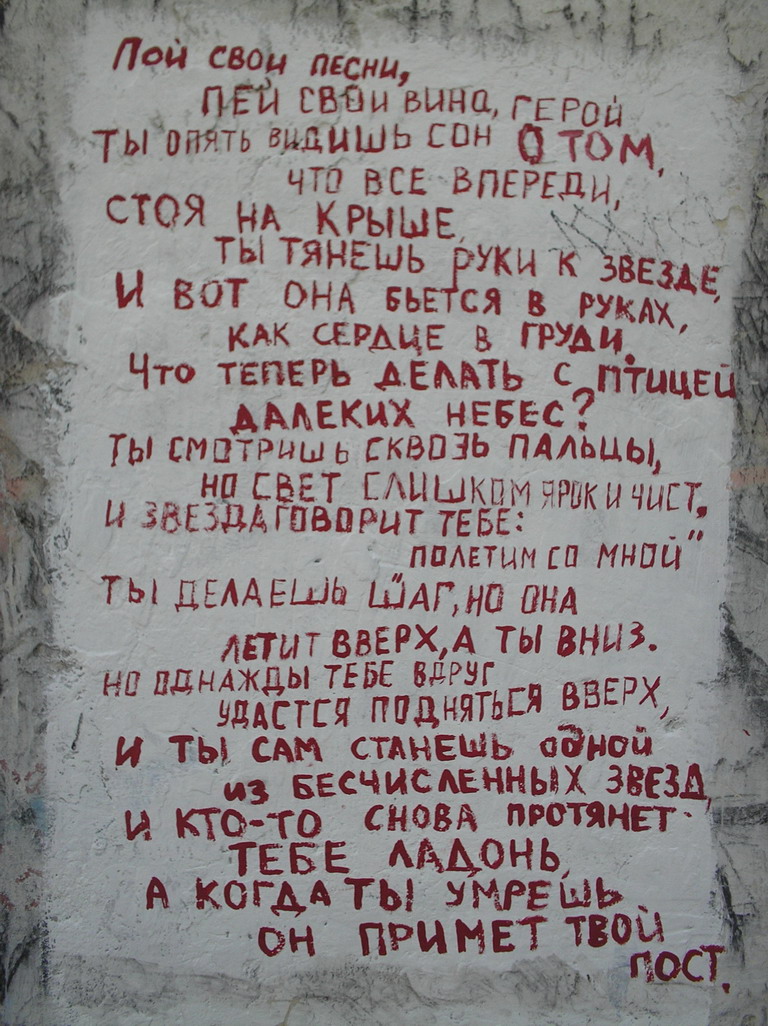 Пой свои песни,
ПЕЙ СВОИ ВИНА, ГЕРОЙ
ТЫ ОПЯТЬ ВИДИШЬ СОН О ТОМ,
ЧТО ВСЕ ВПЕРЕДИ,
СТОЯ НА КРЫШЕ,
ТЫ ТЯНЕШЬ РУКИ К ЗВЕЗДЕ,
И ВОТ ОНА БЬЕТСЯ В РУКАХ,
КАК СЕРДЦЕ В ГРУДИ.
Что ТЕПЕРЬ ДЕЛАТЬ С ПТИЦЕЙ
ДАЛЕКИХ НЕБЕС?
ТЫ СМОТРИШЬ СКВОЗЬ ПАЛЬЦЫ,
НО СВЕТ СЛИШКОМ ЯРОК И ЧИСТ.
И ЗВЕЗДА ГОВОРИТ ТЕБЕ:
ПОЛЕТИМ СО МНОЙ"
ТЫ ДЕЛАЕШЬ ШАГ, НО ОНА
ЛЕТИТ ВВЕРХ, А ТЫ ВНИЗ.
НО ОДНАЖДЫ ТЕБЕ ВДРУГ
УДАСТСЯ ПОДНЯТЬСЯ ВВЕРХ,
И ТЫ САМ СТАНЕШЬ одНОЙ
ИЗ БЕСЧИСЛЕННЫХ ЗВЕЗД,
И КТО-ТО СНОВА ПРОТЯНЕТ
ТЕБЕ ЛАДОНЬ,
А КОГДА ТЫ УМРЕШЬ
ОН ПРИМЕТ ТВОЙ
ПОСТ.